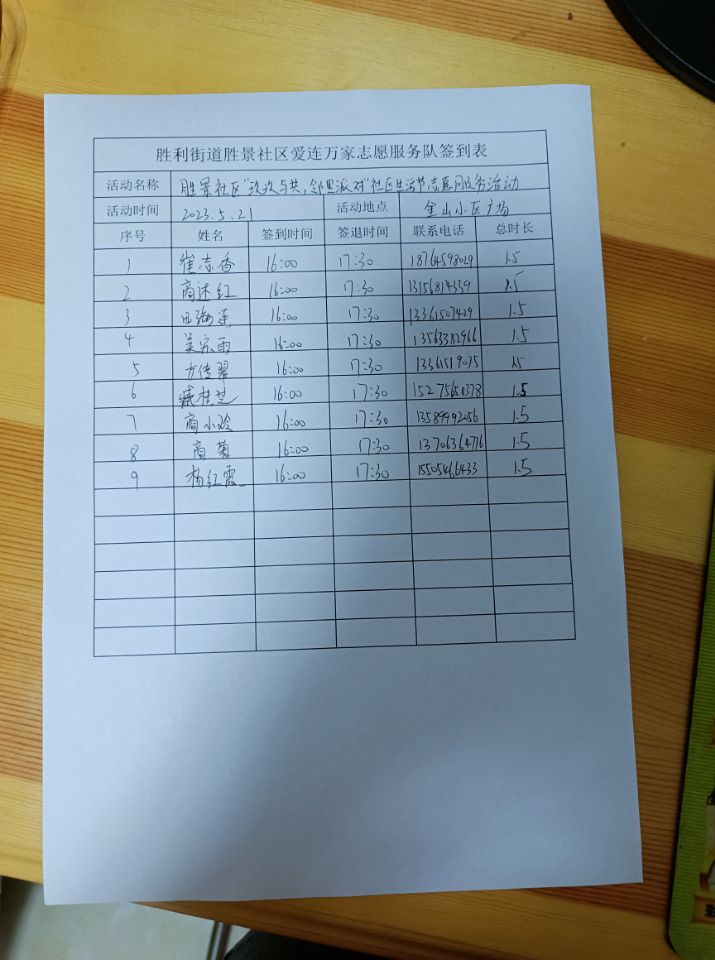 胜利街道胜景社区爱连万家志愿服务队签到表
活动名称 胜景社区"玫玫与共,邻里派对"社区生活节志愿服务活动
活动时间 2023.5.21 活动地点 金山小区广场
序号 姓名 签到时间 签退时间 联系电话 总时长
1 崔志香 16:00 17:30 18764598029 1.5
2 商述红 16:00 17:30 13156814339 1.5
3 田海莲 16:00 17:30 13361507429 1.5
4 吴宗雨 16:00 17:30 13563382966 1.5
5 方传翠 16:00 17:30 13361519075 1.5
6 臧桂芝 16:00 17:30 15275650378 1.5
7 商小玲 16:00 17:30 13589992056 1.5
8 商菊 16:00 17:30 13706364776 1.5
9 杨红霞 16:00 17:30 15505466433 1.5